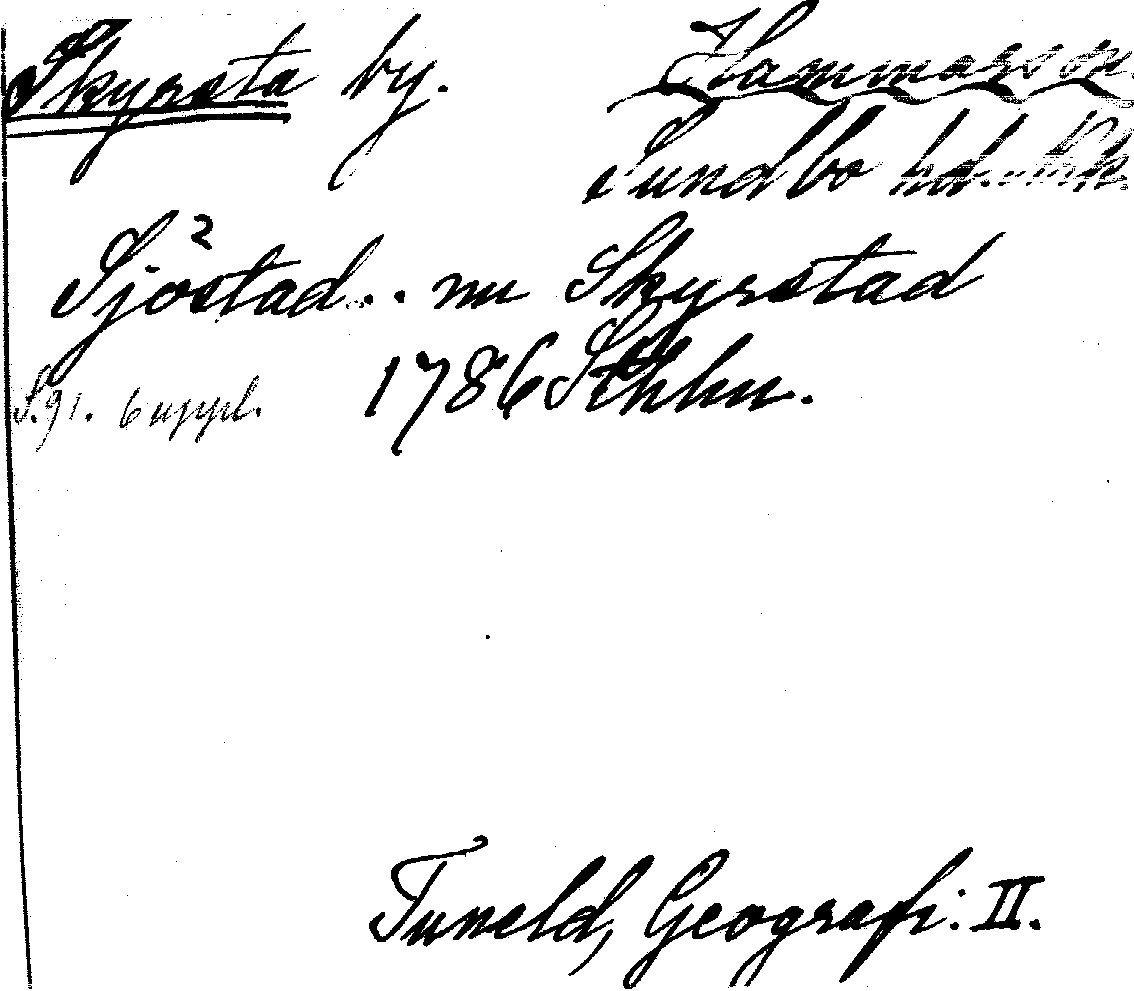 Skyrsta by. Hammars sn.
Sundbo hd.
Sjöstad... nu Skyrstad
S. 91. 6 uppl. 1786 Sthlm.
Tuneld, Geografi. II.